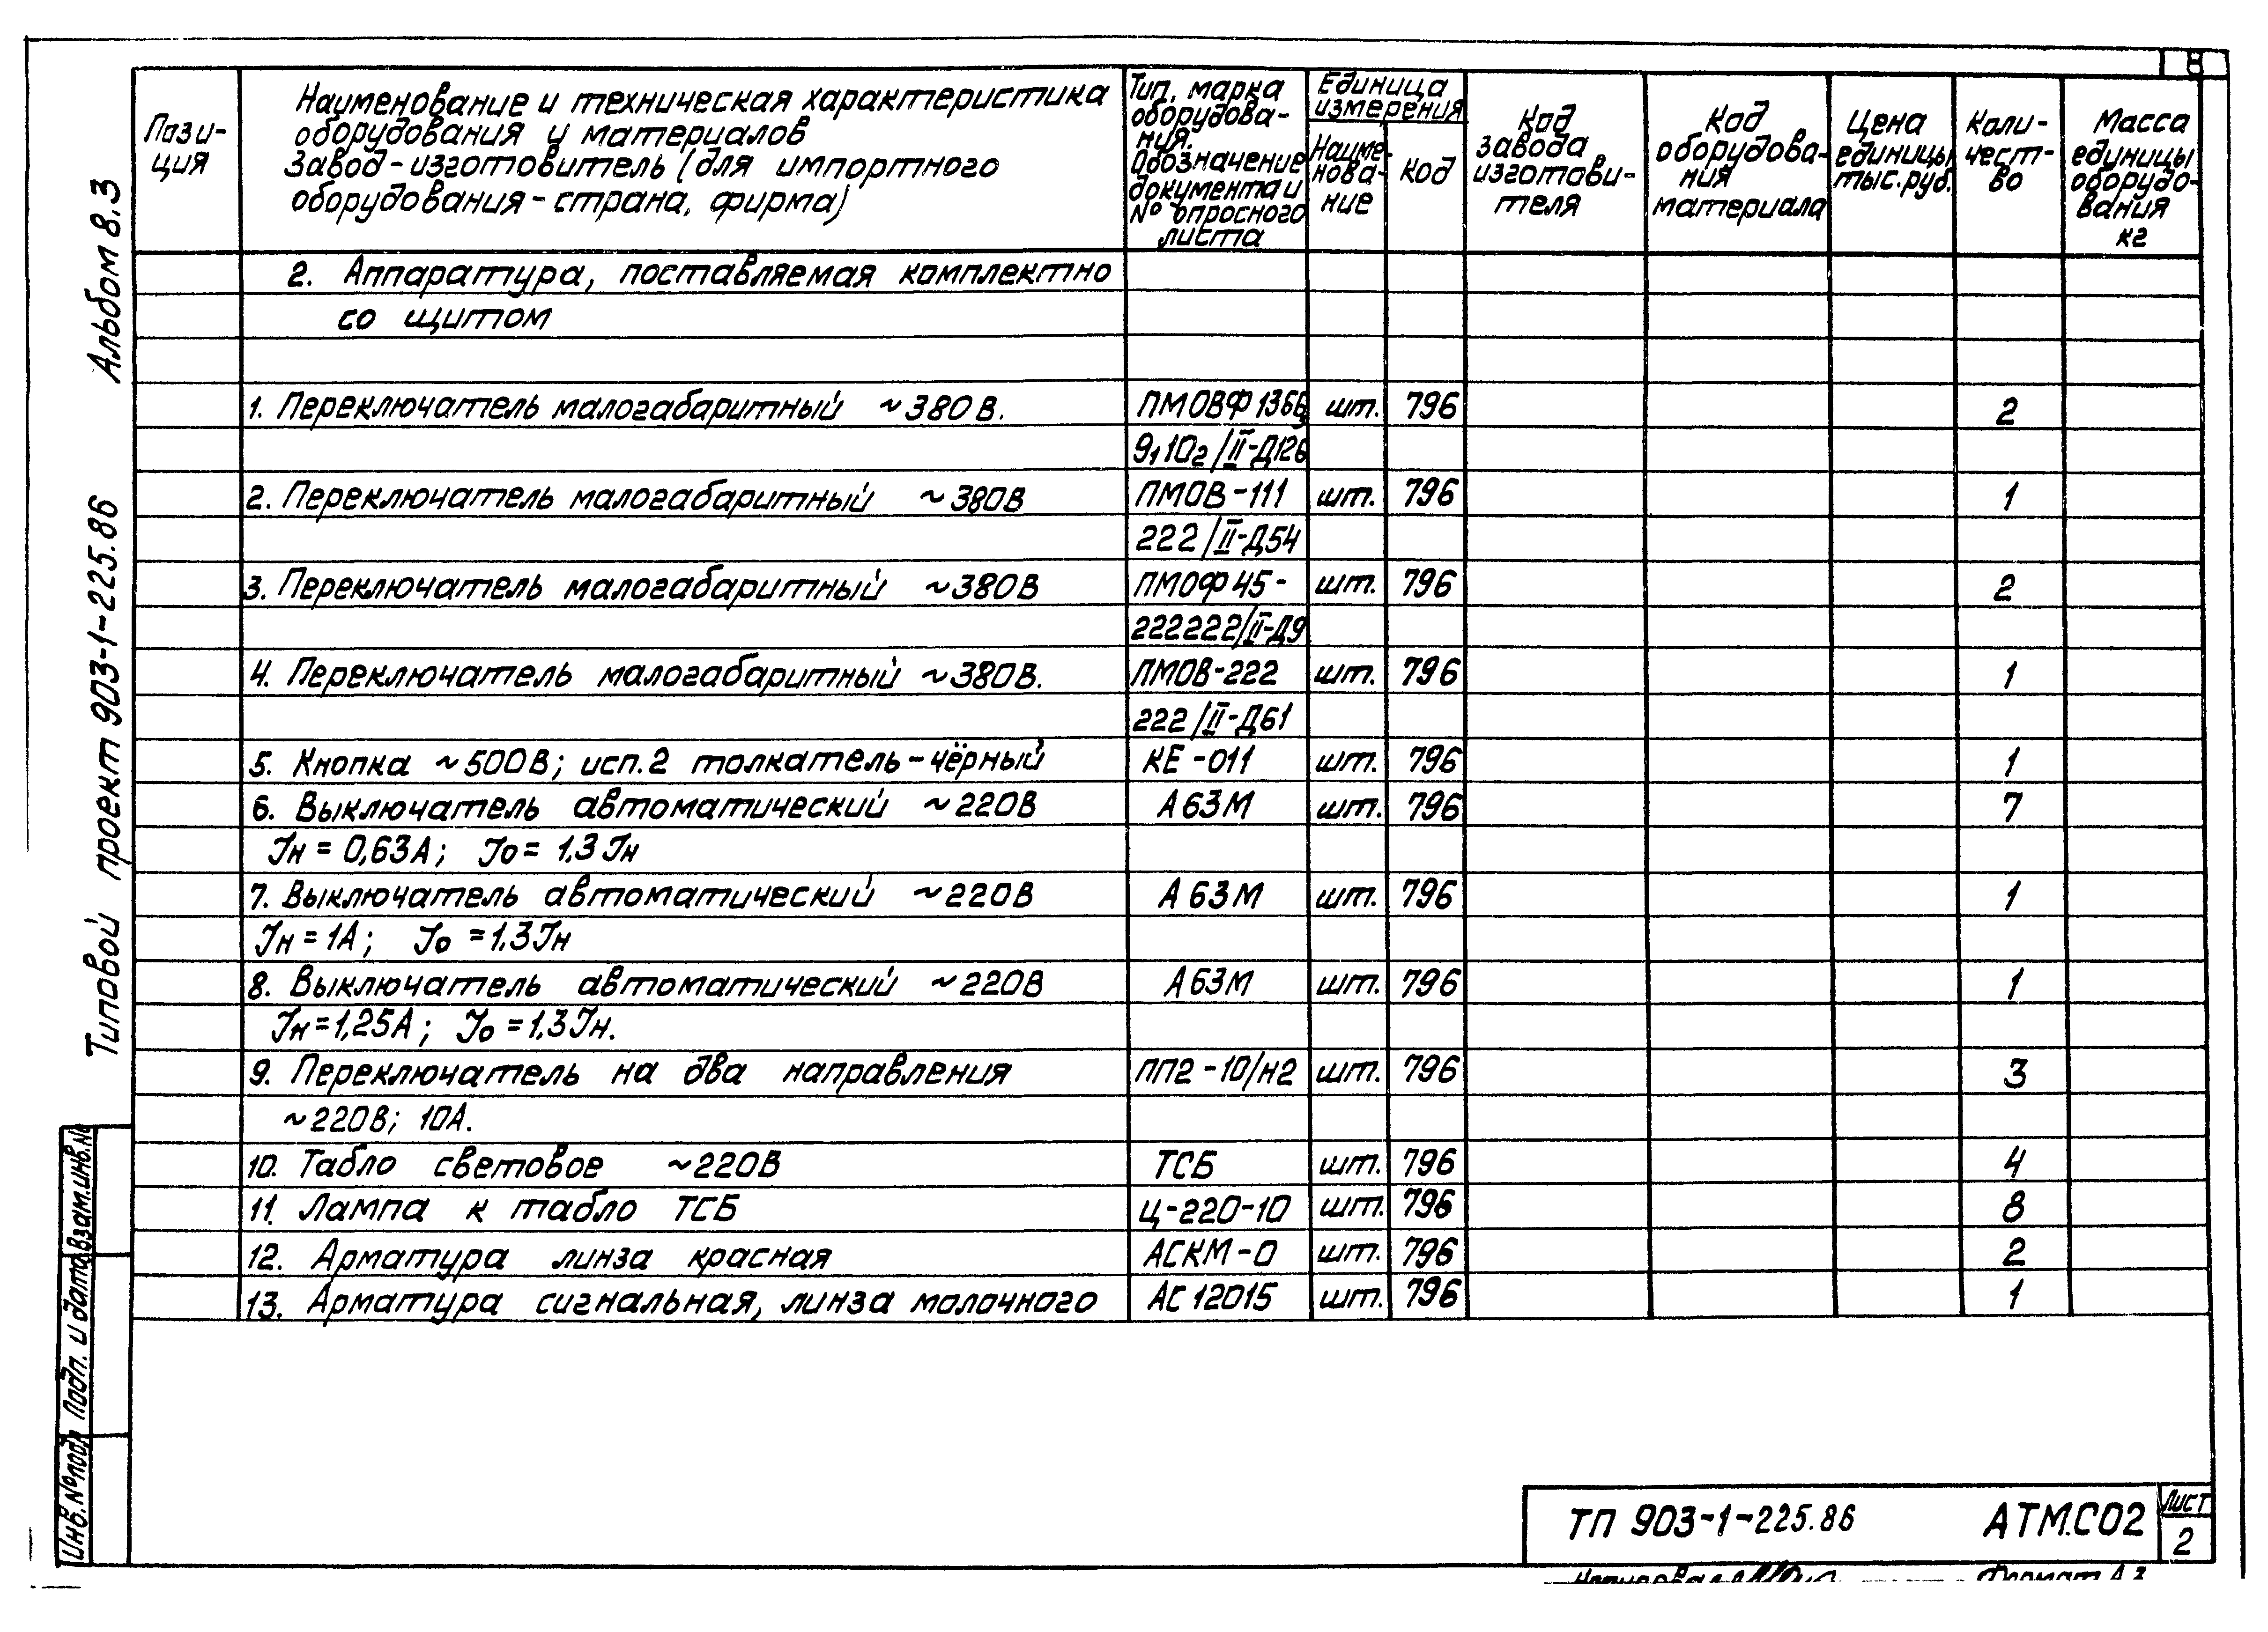 8
Альбом 8.3
Типовой проект 903-1-225.86
Взам.инв.№
Подп. и дата
Инв.№подл
Пози-
ция
Наименование и техническая характеристика
оборудования и материалов
Завод-изготовитель (для импортного
оборудования-страна, фирма)
Тип, марка
оборудова-
ния.
Обозначение
документа и
№ опросного
листа
Единица
измерения
Наиме-
нова-
ние
Код
Код
завода
изготови-
теля
Код
оборудова-
ния
материала
Цена
единицы
тыс.руб.
Коли-
чест-
во
Масса
единицы
оборудо-
вания
кг
2. Аппаратура, поставляемая комплектно
со щитом
1. Переключатель малогабаритный ~380В. ПМОВФ 1366 шт. 796 2
9,10₂/II-Д126
2. Переключатель малогабаритный ~380В ПМОВ-111 шт. 796 1
222/II-Д54
3. Переключатель малогабаритный ~380В ПМОФ45- шт. 796 2
222222/II-Д9
4. Переключатель малогабаритный ~380В. ПМОВ-222 шт. 796 1
222/II-Д61
5. Кнопка ~500В; исп.2 толкатель-чёрный КЕ-011 шт. 796 1
6. Выключатель автоматический ~220В А63М шт. 796 7
Iн = 0,63А; Iо = 1,3 Iн
7. Выключатель автоматический ~220В А63М шт. 796 1
Iн = 1А; Iо = 1,3Iн
8. Выключатель автоматический ~220В А63М шт. 796 1
Iн = 1,25А; Iо = 1,3Iн.
9. Переключатель на два направления ПП2-10/Н2 шт. 796 3
~220В; 10А.
10. Табло световое ~220В ТСБ шт. 796 4
11. Лампа к табло ТСБ Ц-220-10 шт. 796 8
12. Арматура линза красная АСКМ-0 шт. 796 2
13. Арматура сигнальная, линза молочного АС12015 шт. 796 1
ТП 903-1-225.86 АТМ.СО2
Лист
2
Формат А3